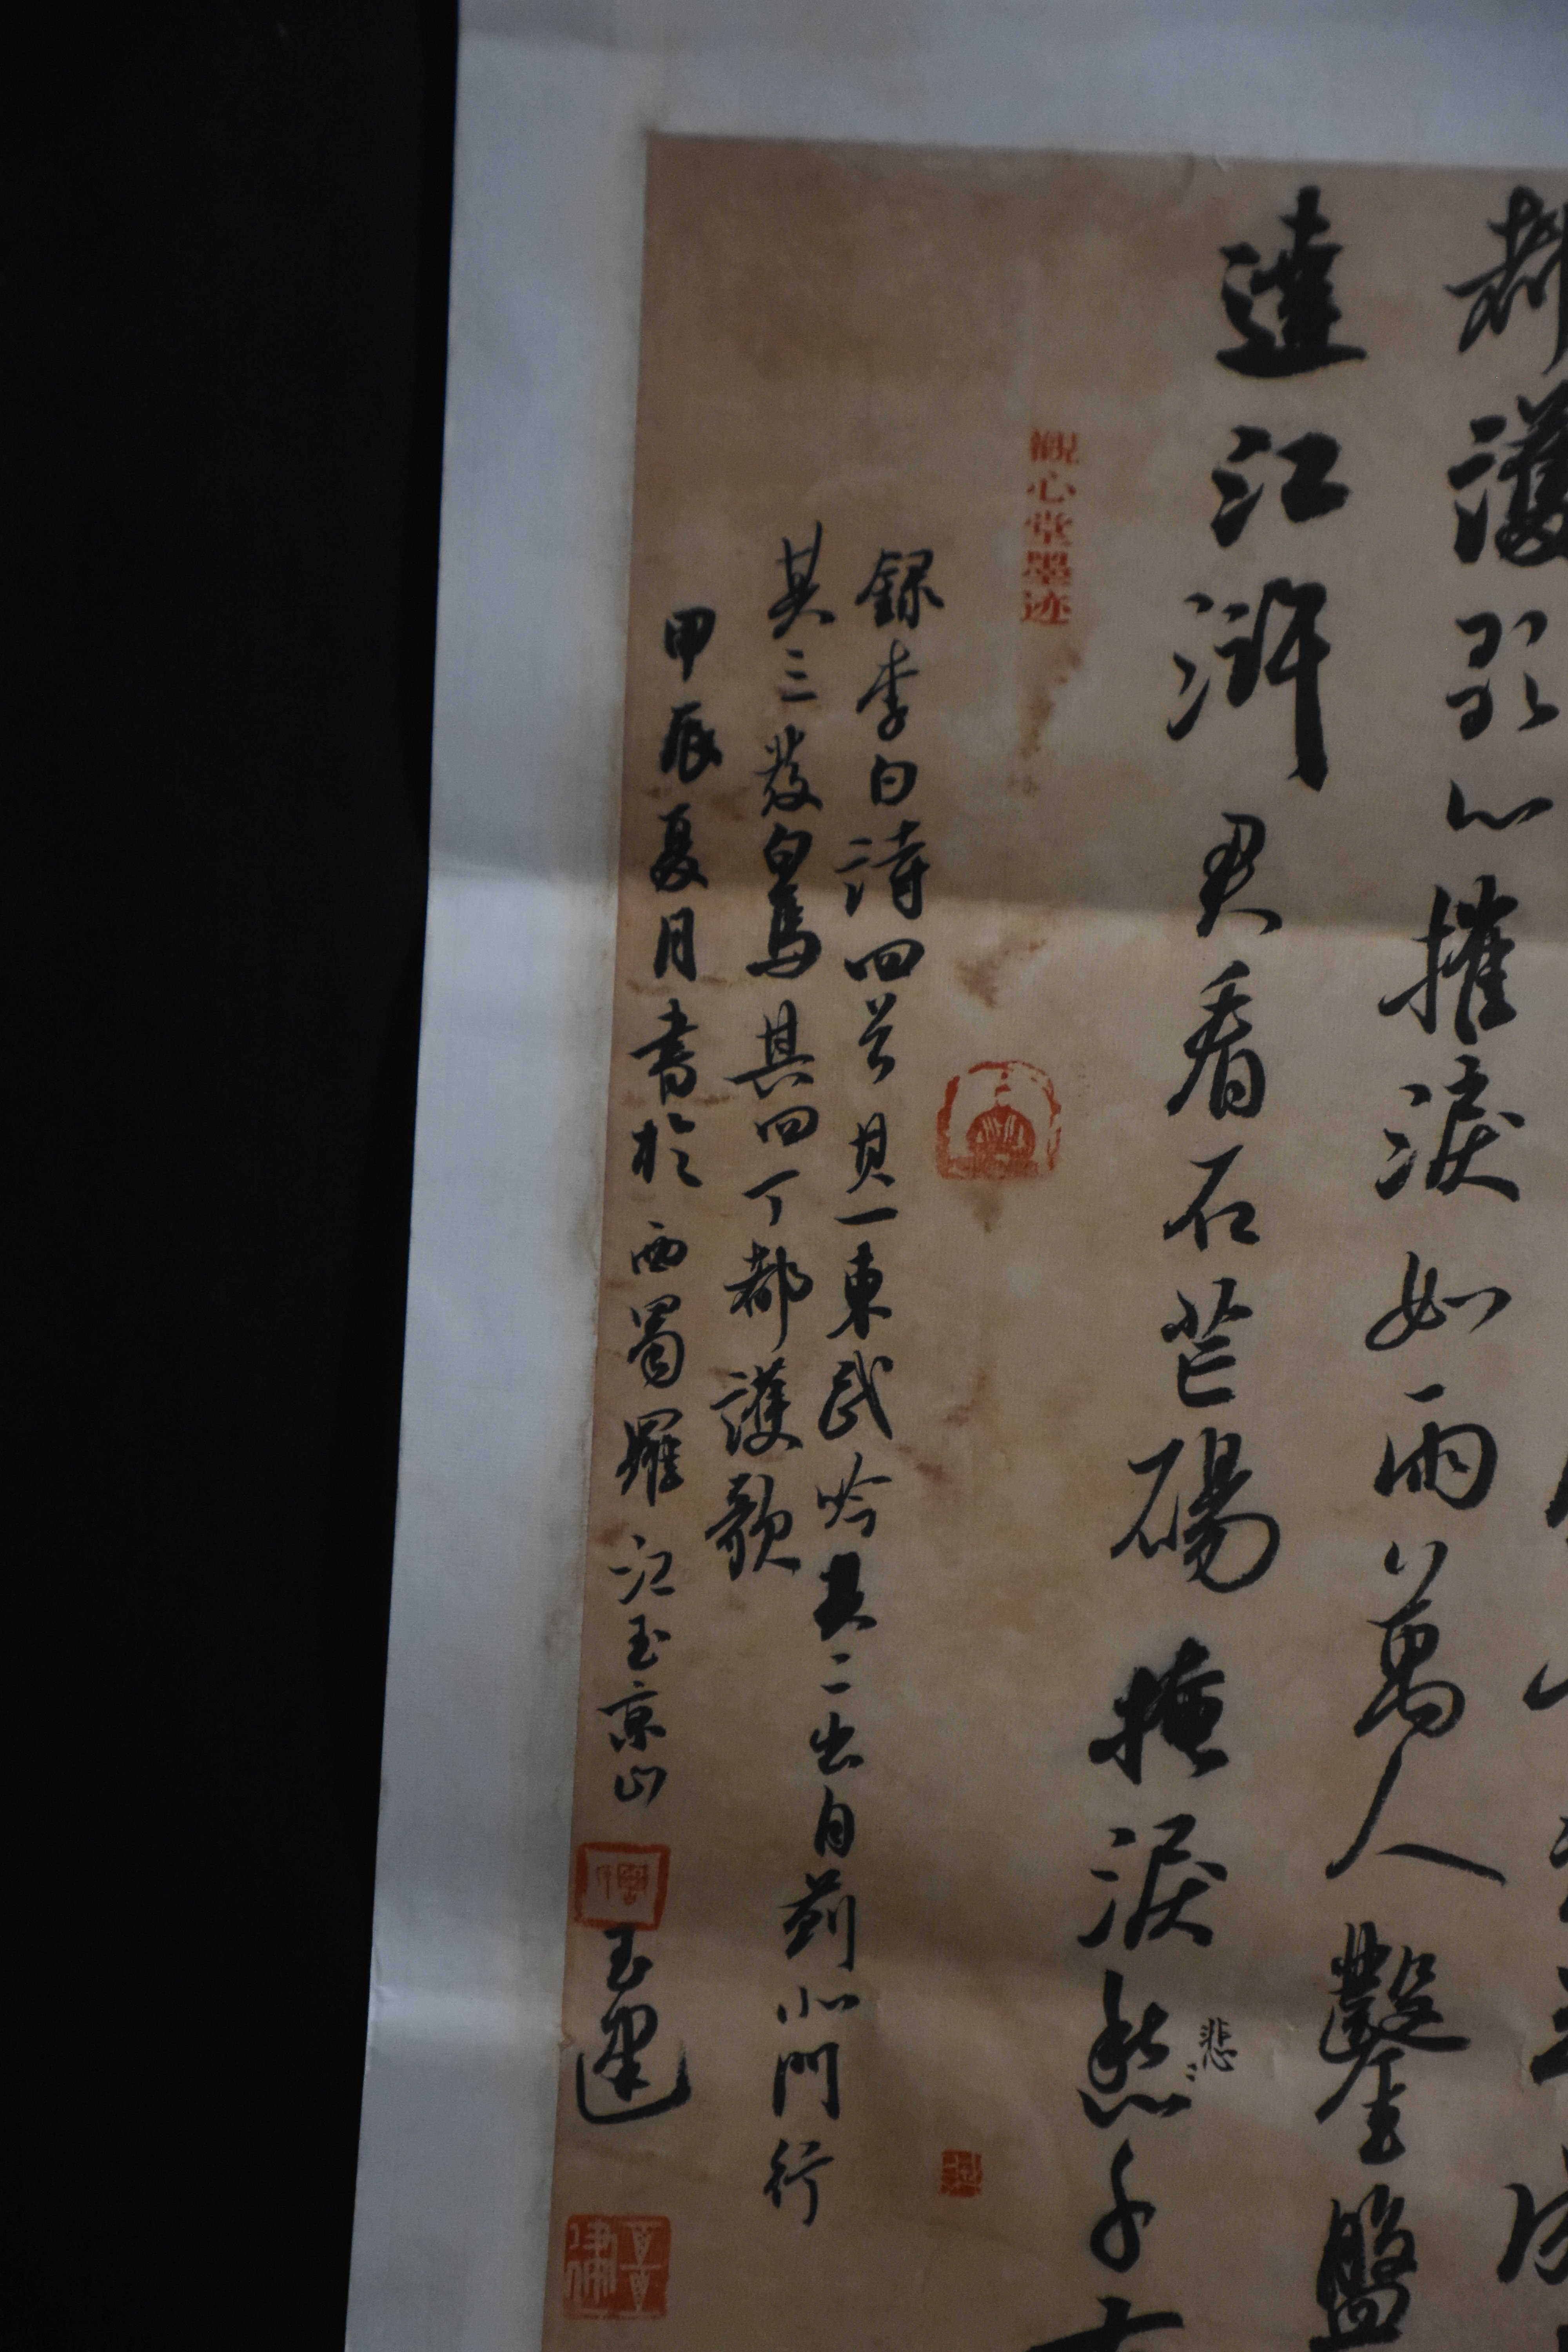 都護歌心摧淚如雨萬人鑿盤
達江滸君看石芒碭掩淚愁千古
悲
觀心堂墨迹
録李白詩四首其一東武吟其二出自薊北門行
其三發白馬其四丁都護歌
甲辰夏月書於西蜀羅江玉京山